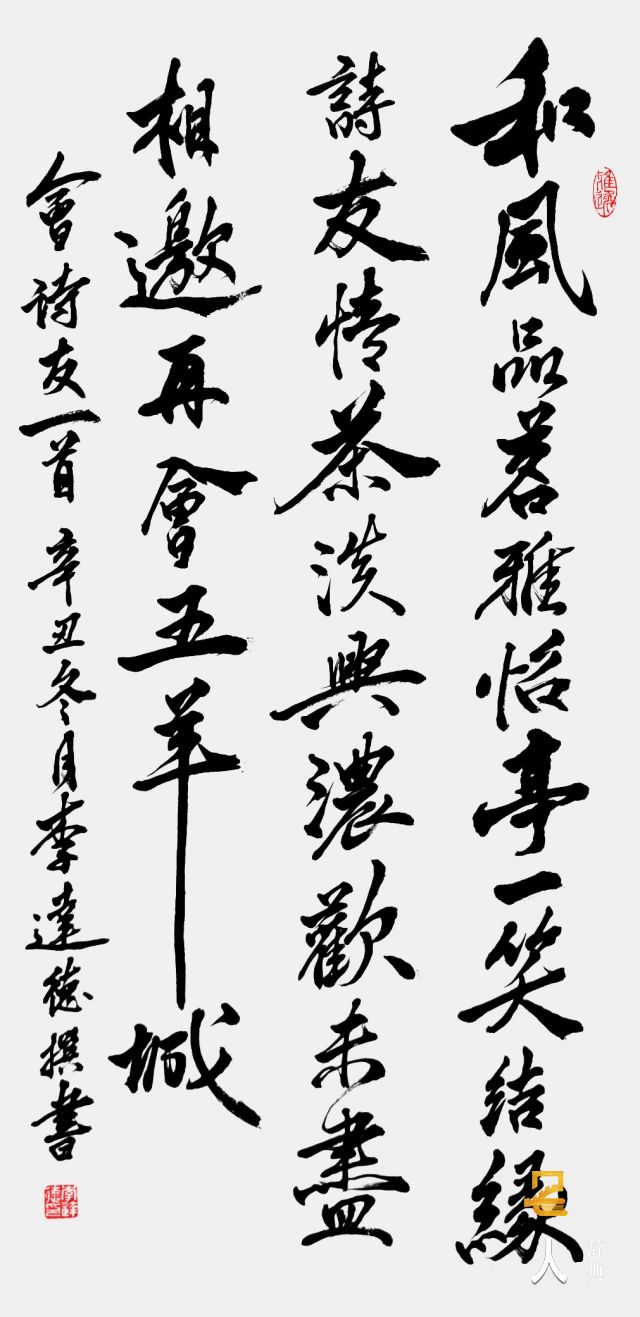 和風品茗雅怡亭一笑结緣
詩友情茶淡興濃歡未盡
相邀再會五羊城
會诗友一首 辛丑冬月李達德撰書
名人
辞典